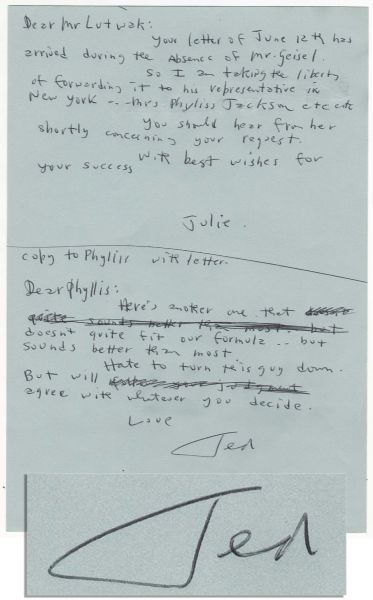 Dear Mr Lutwak:
Your letter of June 12th has
arrived during the Absence of Mr. Geisel.
So I am taking the liberty
of forwarding it to his representative in
New York -- Mrs Phyliss Jackson etc etc
You should hear from her
shortly concerning your request.
With best wishes for
your success
Julie.
copy to Phyliss with letter.
Dear Phyllis:
Here's another one that
quite sounds better than most but
doesn't quite fit our formula -- but
sounds better than most.
Hate to turn this guy down.
But will judgment
agree with whatever you decide.
Love
Ted
Ted